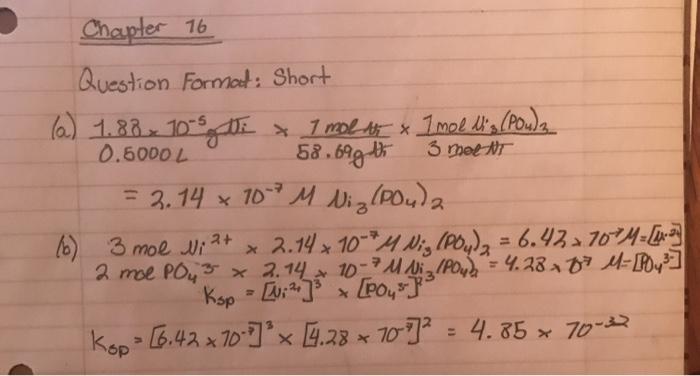 Chapter 16
Question Format: Short
(a) 1.88 × 10⁻⁵ g Ni / 0.5000 L × 1 mol Ni / 58.69 g Ni × 1 mol Ni₃(PO₄)₂ / 3 mol Ni
= 2.14 × 10⁻⁷ M Ni₃(PO₄)₂
(b) 3 mol Ni²⁺ × 2.14 × 10⁻⁷ M Ni₃(PO₄)₂ = 6.42 × 10⁻⁷ M = [Ni²⁺]
2 mol PO₄³⁻ × 2.14 × 10⁻⁷ M Ni₃(PO₄)₂ = 4.28 × 10⁻⁷ M = [PO₄³⁻]
Ksp = [Ni²⁺]³ × [PO₄³⁻]²
Ksp = [6.42 × 10⁻⁷]³ × [4.28 × 10⁻⁷]² = 4.85 × 10⁻³²